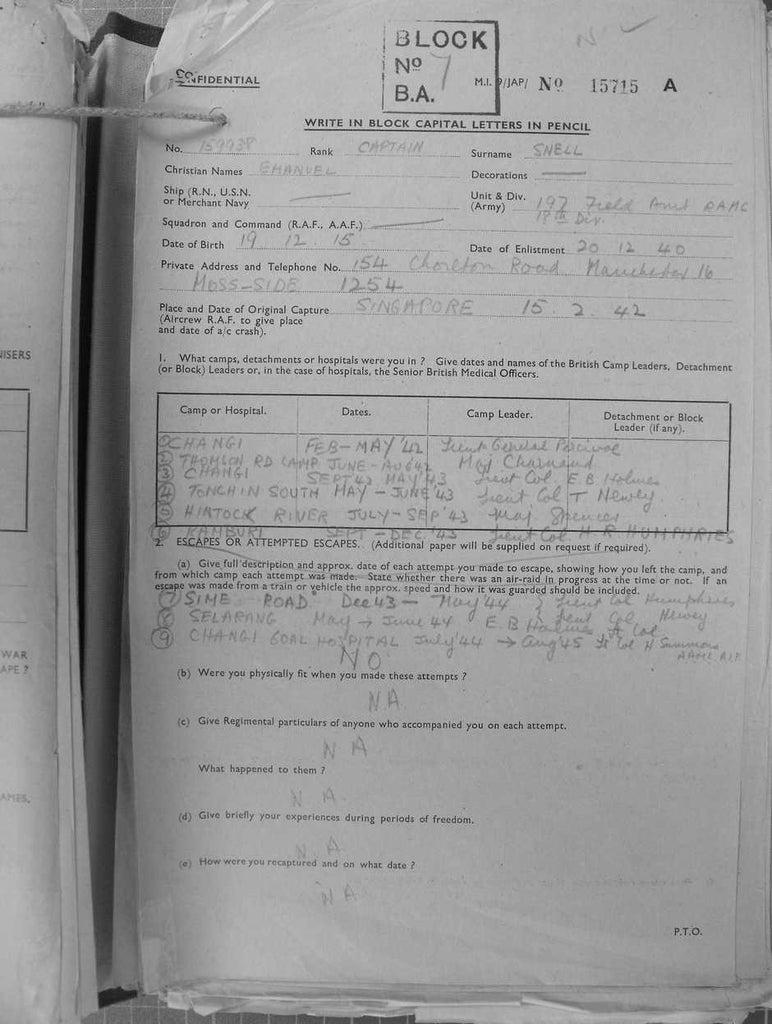 BLOCK
No 7
B.A.
CONFIDENTIAL
M.I. 9/JAP/ No 15715 A
WRITE IN BLOCK CAPITAL LETTERS IN PENCIL
No. 159938 Rank CAPTAIN Surname SNELL
Christian Names EMANUEL Decorations —
Ship (R.N., U.S.N. or Merchant Navy —
Unit & Div. (Army) 197 Field Amb RAMC
18th Div.
Squadron and Command (R.A.F., A.A.F.) —
Date of Birth 19 . 12 . 15 Date of Enlistment 20 12 40
Private Address and Telephone No. 154 Chorlton Road Manchester 16
MOSS-SIDE 1254
Place and Date of Original Capture SINGAPORE 15 . 2 . 42
(Aircrew R.A.F. to give place
and date of a/c crash).
1. What camps, detachments or hospitals were you in ? Give dates and names of the British Camp Leaders, Detachment
(or Block) Leaders or, in the case of hospitals, the Senior British Medical Officers.
Camp or Hospital. Dates. Camp Leader. Detachment or Block Leader (if any).
① CHANGI FEB-MAY '42 Lieut General Percival
② THOMSON RD CAMP JUNE-AUG 42 Maj
③ CHANGI SEPT 42 MAY '43 Lieut Col. E B Holmes
④ TONCHIN SOUTH MAY - JUNE '43 Lieut Col T Newey
⑤ HINTOCK RIVER JULY-SEP '43 Maj Spencer
⑥ KAMBURI SEPT - DEC '43 Lieut Col. H R HUMPHRIES
2. ESCAPES OR ATTEMPTED ESCAPES. (Additional paper will be supplied on request if required).
(a) Give full description and approx. date of each attempt you made to escape, showing how you left the camp, and
from which camp each attempt was made. State whether there was an air-raid in progress at the time or not. If an
escape was made from a train or vehicle the approx. speed and how it was guarded should be included.
⑦ SIME ROAD Dec 43 - May '44 } Lieut Col Humphries
⑧ SELARANG May → June 44 E. B Holmes Lieut Col Newey
⑨ CHANGI GOAL HOSPITAL July '44 → Aug '45 Lt Col H Summons
AAMC AIF
NO
(b) Were you physically fit when you made these attempts ?
NA
(c) Give Regimental particulars of anyone who accompanied you on each attempt.
N A
What happened to them ?
N A
(d) Give briefly your experiences during periods of freedom.
N A
(e) How were you recaptured and on what date ?
N A
P.T.O.
ISERS
WAR
APE ?
AMES.